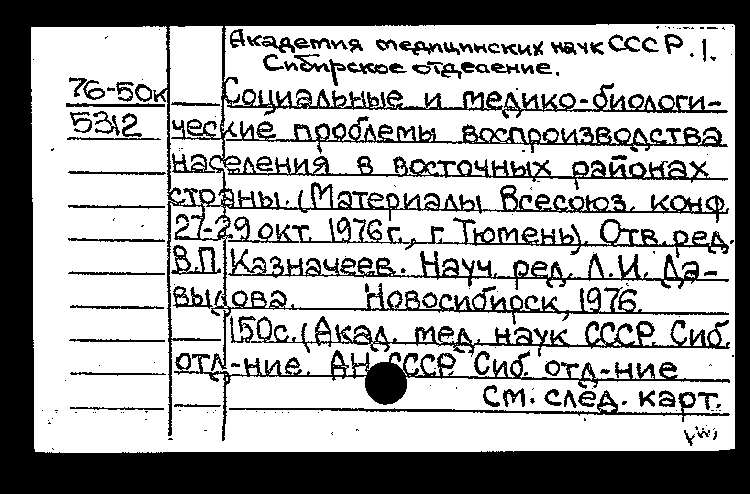 Академия медицинских наук СССР. 1.
Сибирское отделение.
76-50к Социальные и медико-биологи-
5312 ческие проблемы воспроизводства
населения в восточных районах
страны. (Материалы Всесоюз. конф.
27-29 окт. 1976 г., г. Тюмень). Отв. ред.
В.П. Казначеев. Науч. ред. Л.И. Да-
выдова. Новосибирск, 1976.
150с. (Акад. мед. наук СССР. Сиб.
отд-ние. АН СССР. Сиб. отд-ние
См. след. карт.